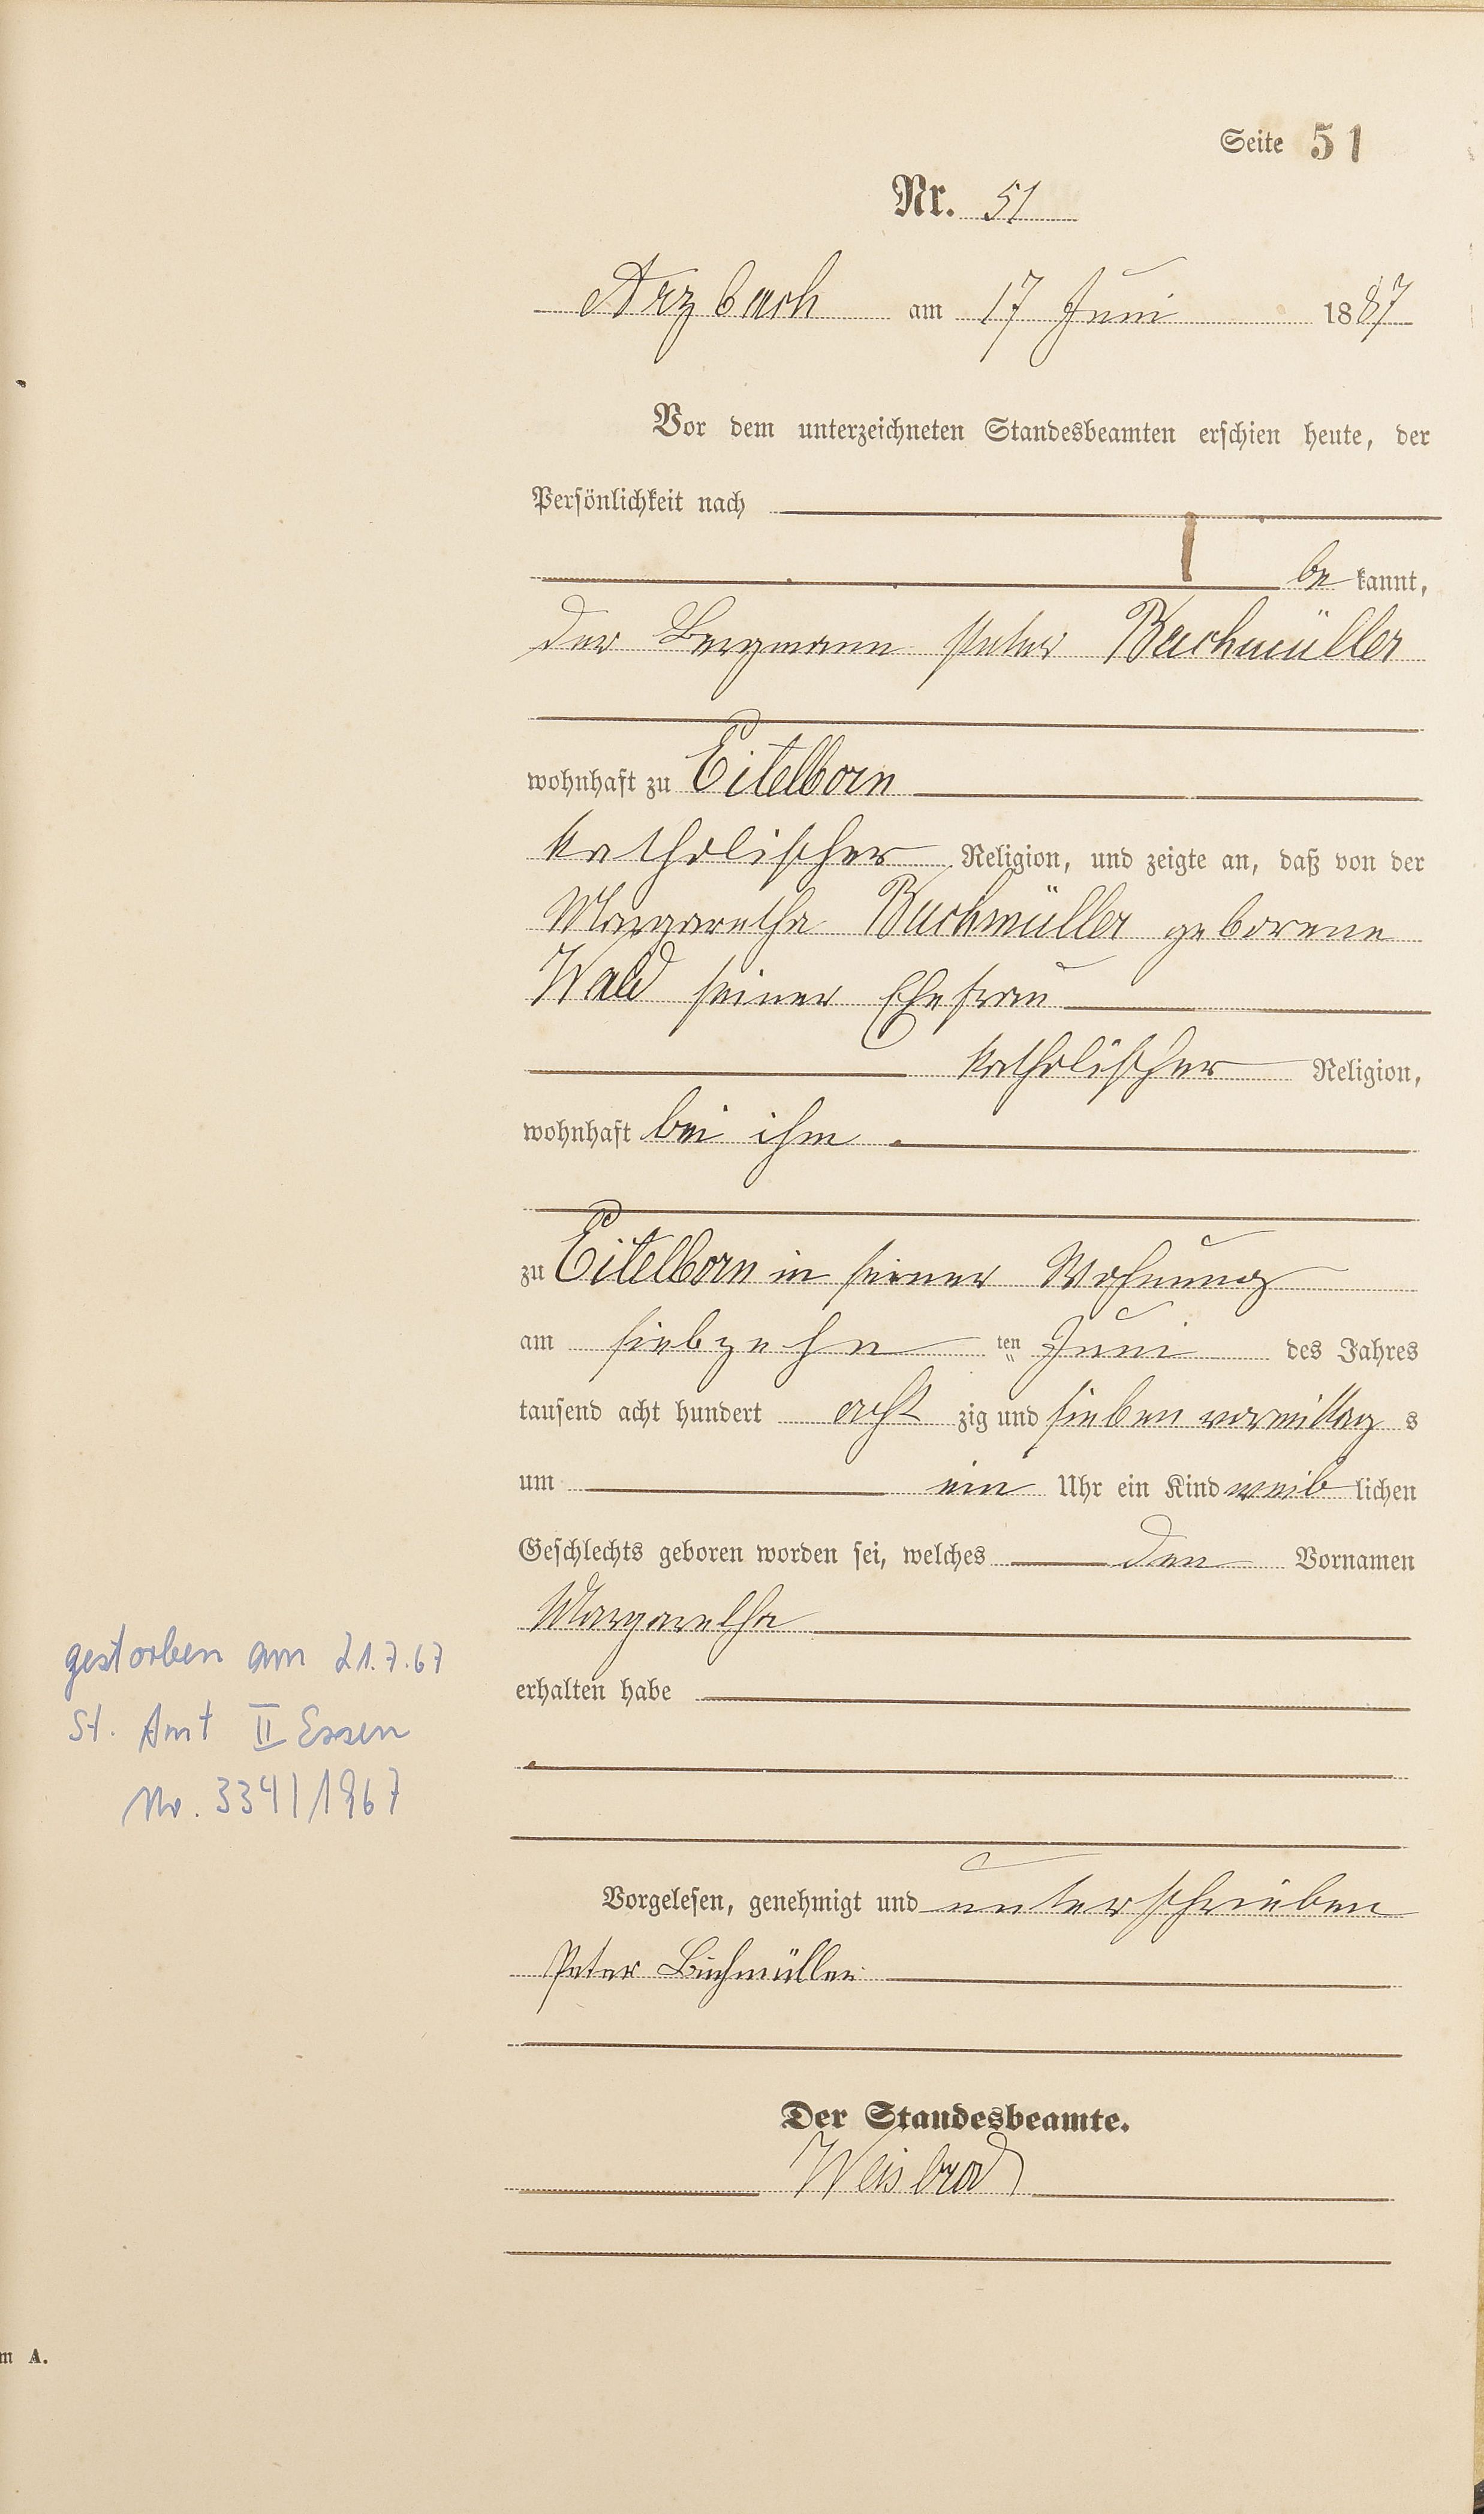 Seite 51
Nr. 51
Arzbach am 17 Juni 1887
Vor dem unterzeichneten Standesbeamten erschien heute, der
Persönlichkeit nach
be kannt,
der Bergmann Peter Buchmüller
wohnhaft zu Eitelborn
katholischer Religion, und zeigte an, daß von der
Margaretha Buchmüller geborene
Wald seiner Ehefrau
katholischer Religion,
wohnhaft bei ihm
zu Eitelborn in seiner Wohnung
am siebzehn ten Juni des Jahres
tausend acht hundert acht zig und sieben vormittag s
um ein Uhr ein Kind weib lichen
Geschlechts geboren worden sei, welches den Vornamen
Margaretha
erhalten habe
gestorben am 21.7.67
St. Amt II Essen
Nr. 3341/1967
Vorgelesen, genehmigt und unterschrieben
Peter Buchmüller
Der Standesbeamte.
Weisbrod
m A.